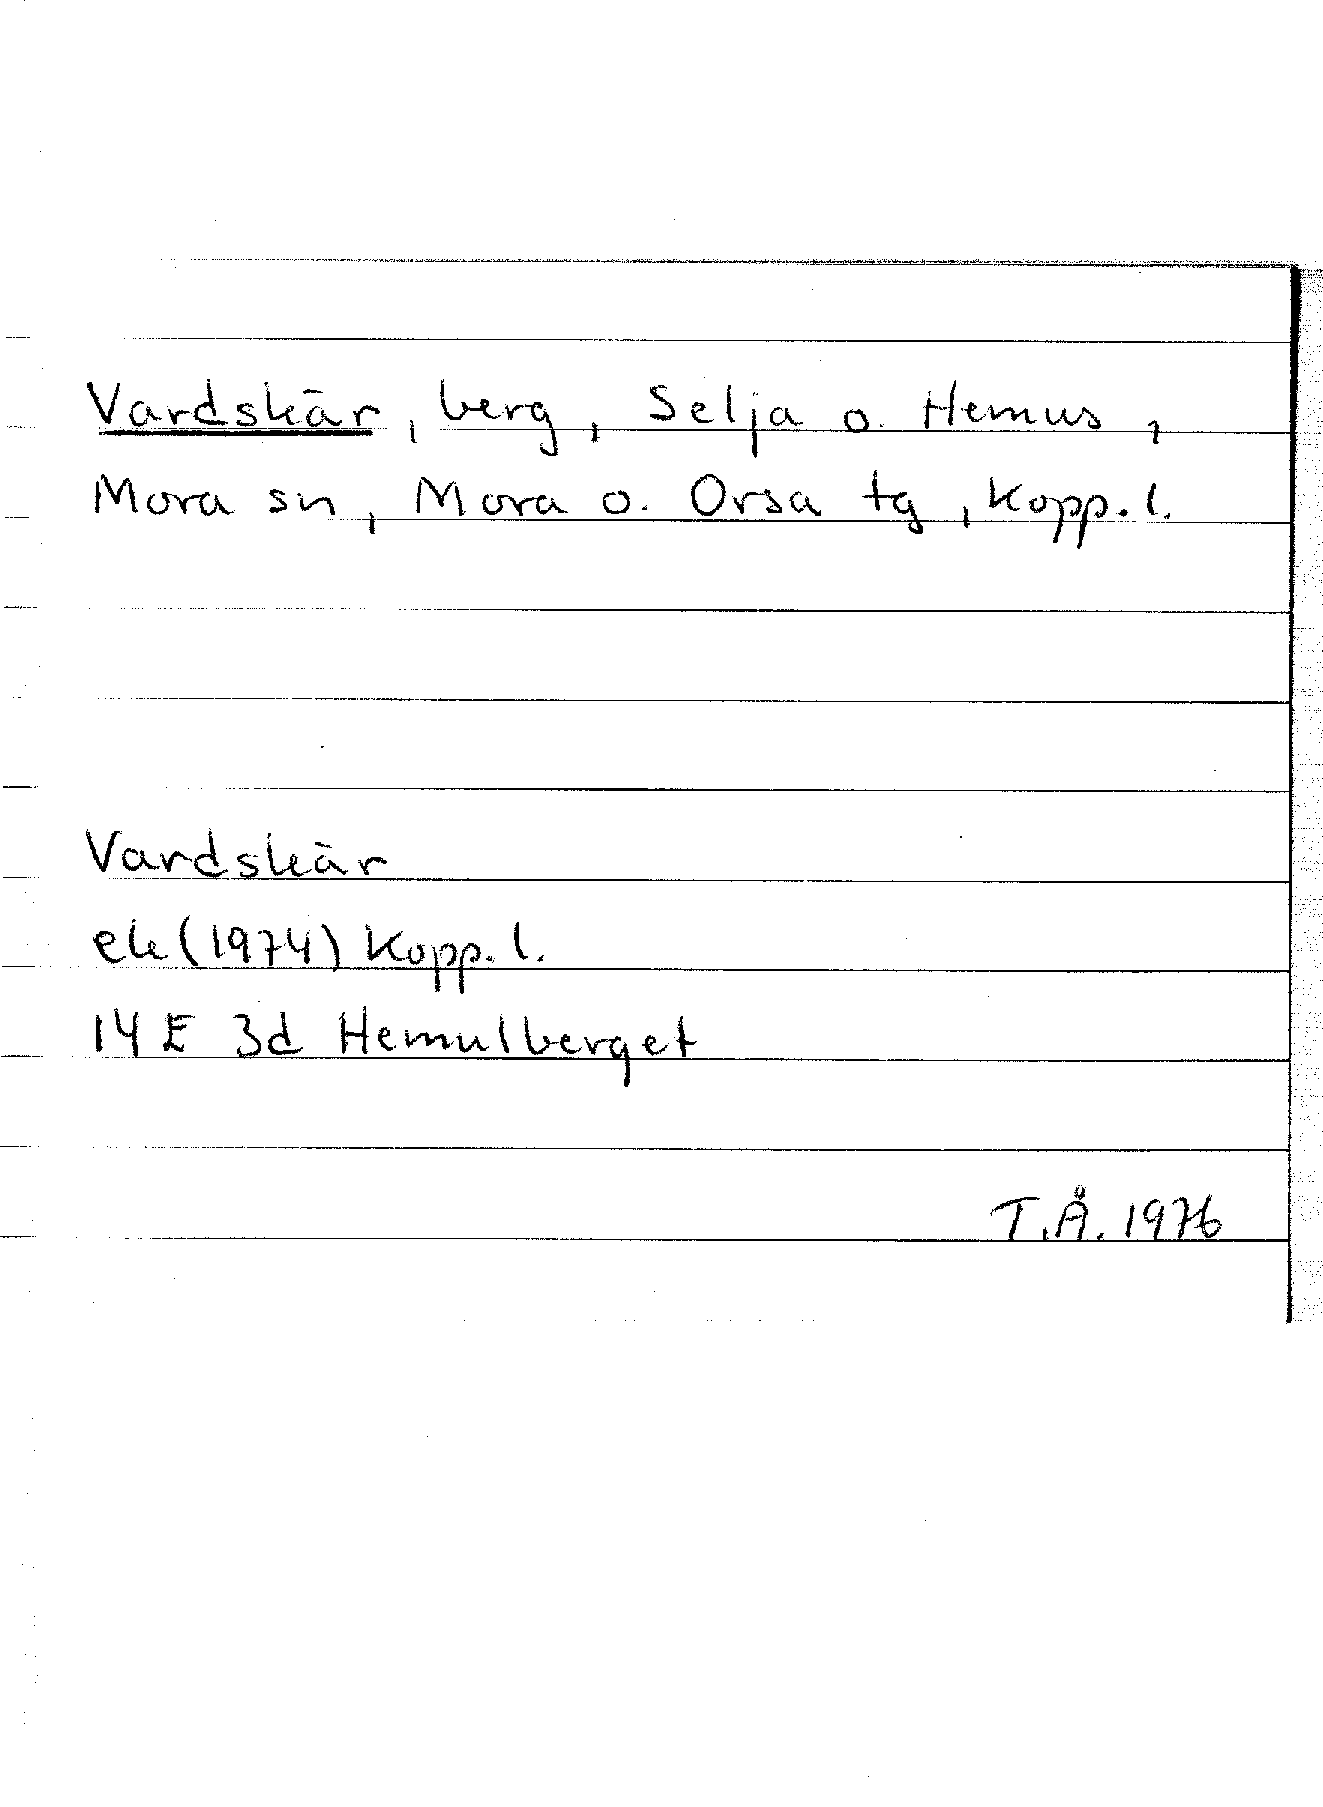 Vardskär, berg, Selja o. Hemus,
Mora sn, Mora o. Orsa tg, Kopp. l.
Vardskär
ek (1974) Kopp. l.
14 E 3d Hemulberget
T.Å. 1976